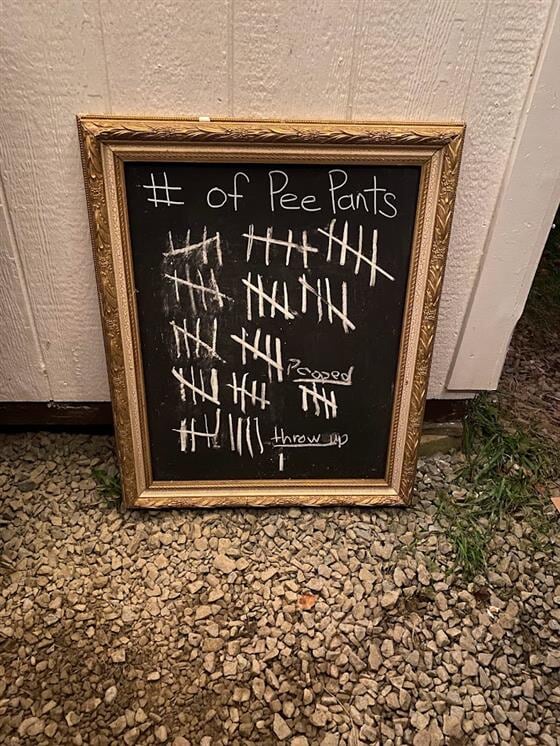 # of Pee Pants
Pooped
throw up
I